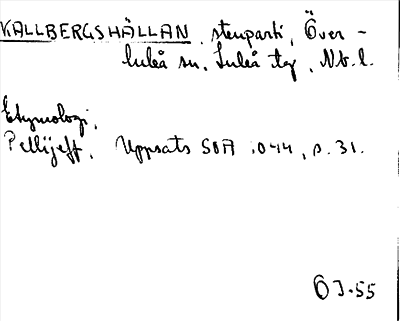 KALLBERGSHÄLLAN, stenparti, Över-
luleå sn, Luleå tg, Nb.l.
Etymologi,
Pellijeff, Uppsats SOA :044, s. 31.
ÖJ-55